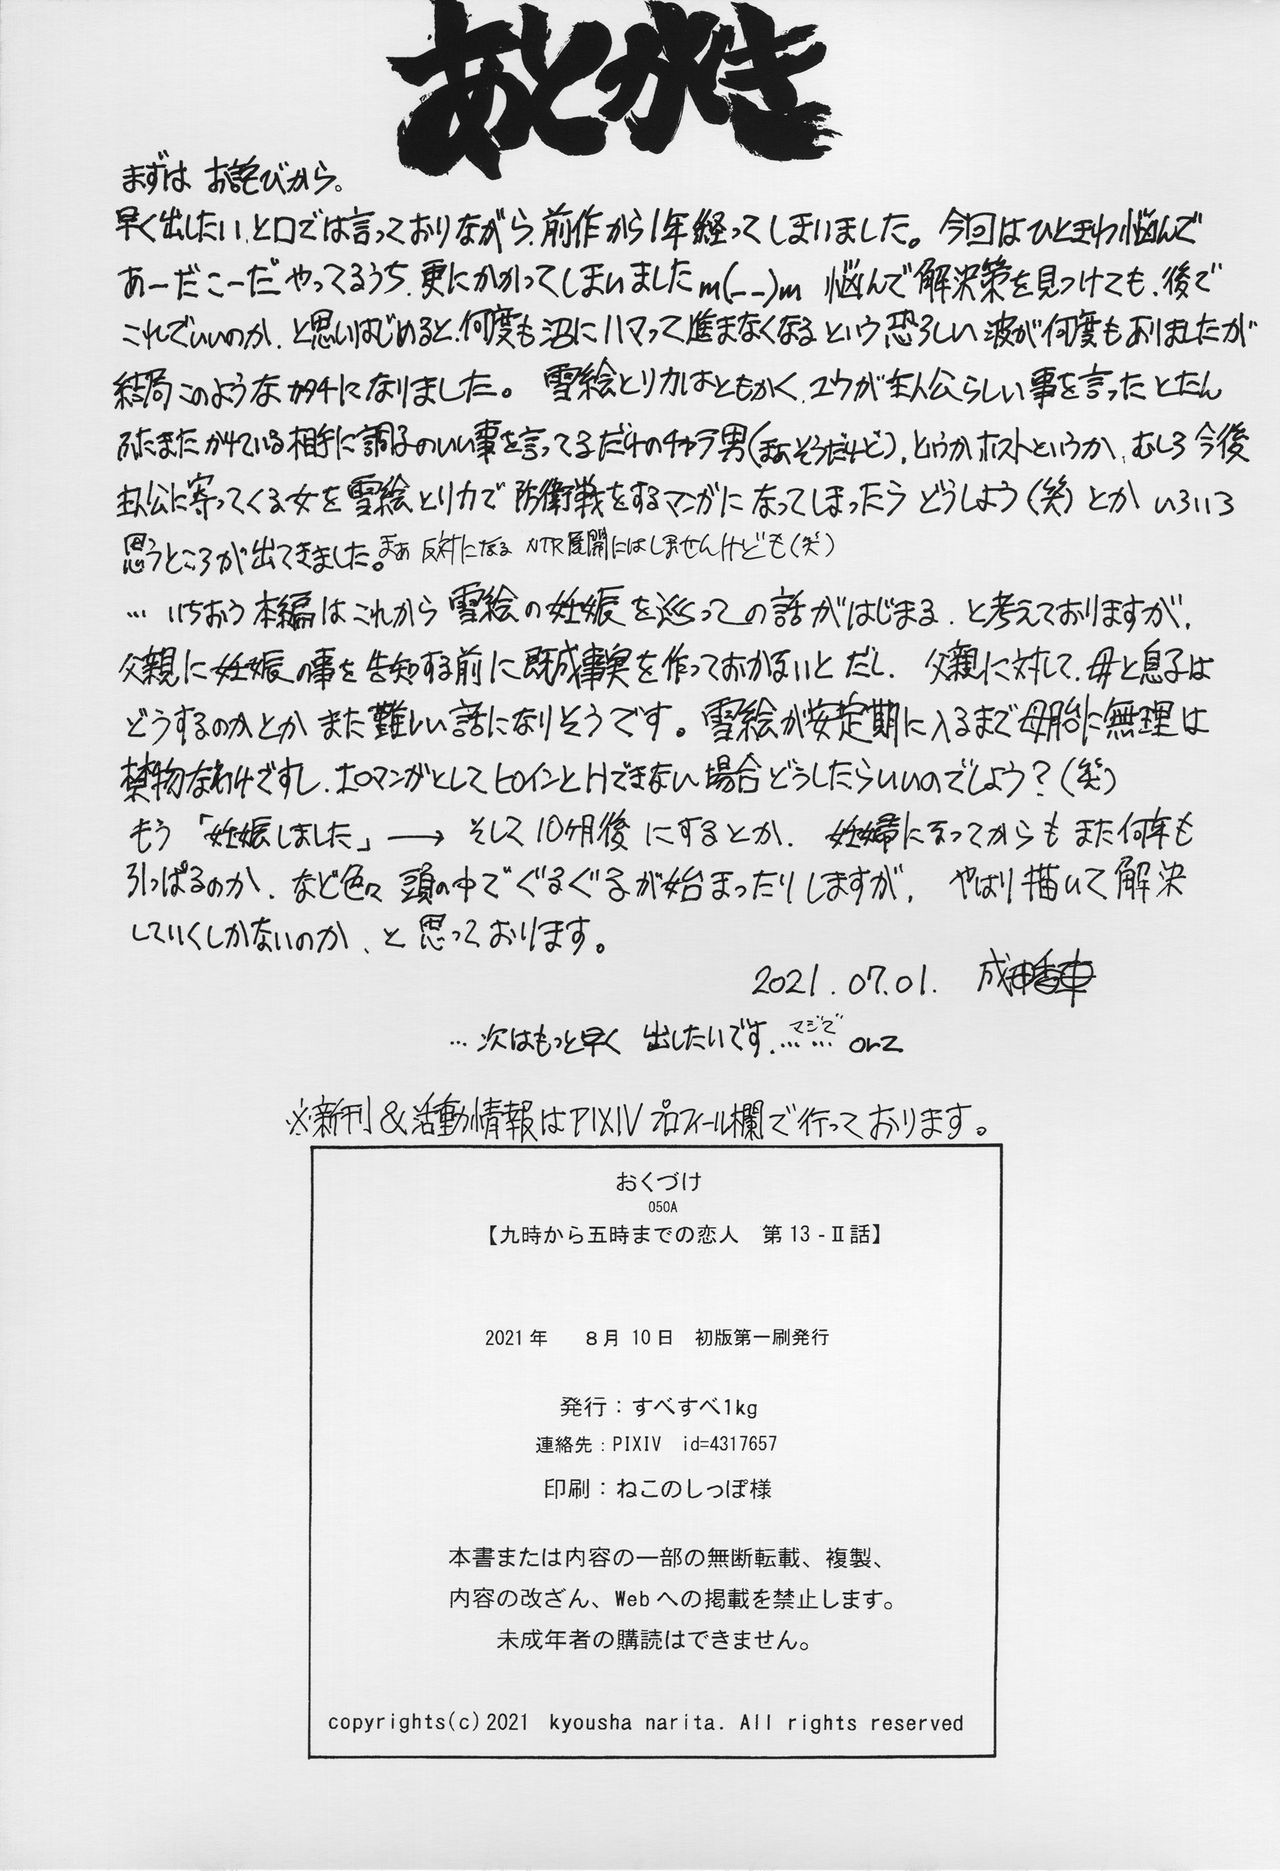 あとがき
まずは お詫びから。
早く出したい、と口では言っておりながら、前作から1年経ってしまいました。今回はひときわ悩んで
あーだこーだ やってるうち、更にかかってしまいましたm(_ _)m 悩んで解決策を見つけても、後で
これでいいのか、と思いはじめると、何度も沼にハマって進まなくなる という恐ろしい波が何度もありましたが
結局このようなカタチになりました。 雪絵とリカはともかく、ユウが主人公らしい事を言ったとたん
ふたまたかけている相手に調子のいい事を言ってるだけのチャラ男(まぁそうだけど)、というかホストというか、むしろ今後
主人公に寄ってくる女を雪絵とリカで防衛戦をするマンガになってしまったらどうしよう(笑)とか いろいろ
思うところが出てきました。まぁ 反対になる NTR展開にはしませんけども(笑)
… いちおう本編はこれから雪絵の妊娠を巡っての話がはじまる、と考えておりますが、
父親に妊娠の事を告知する前に既成事実を作っておかないとだし、父親に対して、母と息子は
どうするのかとか また難しい話になりそうです。雪絵が安定期に入るまで母胎に無理は
禁物なわけですし、エロマンガとしてヒロインとHできない場合どうしたらいいのでしょう?(笑)
もう「妊娠しました」→ そして10ヶ月後 にするとか、 妊婦になってからもまた何年も
引っぱるのか、など色々頭の中でぐるぐるが始まったりしますが、 やはり描いて解決
していくしかないのか、と 思っております。
2021.07.01. 成田香車
… 次はもっと早く 出したいです、マジで…… orz
※新刊&活動情報はPIXIVプロフィール欄で行っております。
おくづけ
050A
【九時から五時までの恋人 第13-Ⅱ話】
2021年 8月10日 初版第一刷発行
発行：すべすべ1kg
連絡先：PIXIV id=4317657
印刷：ねこのしっぽ様
本書または内容の一部の無断転載、複製、
内容の改ざん、Webへの掲載を禁止します。
未成年者の購読はできません。
copyrights(c)2021 kyousha narita. All rights reserved